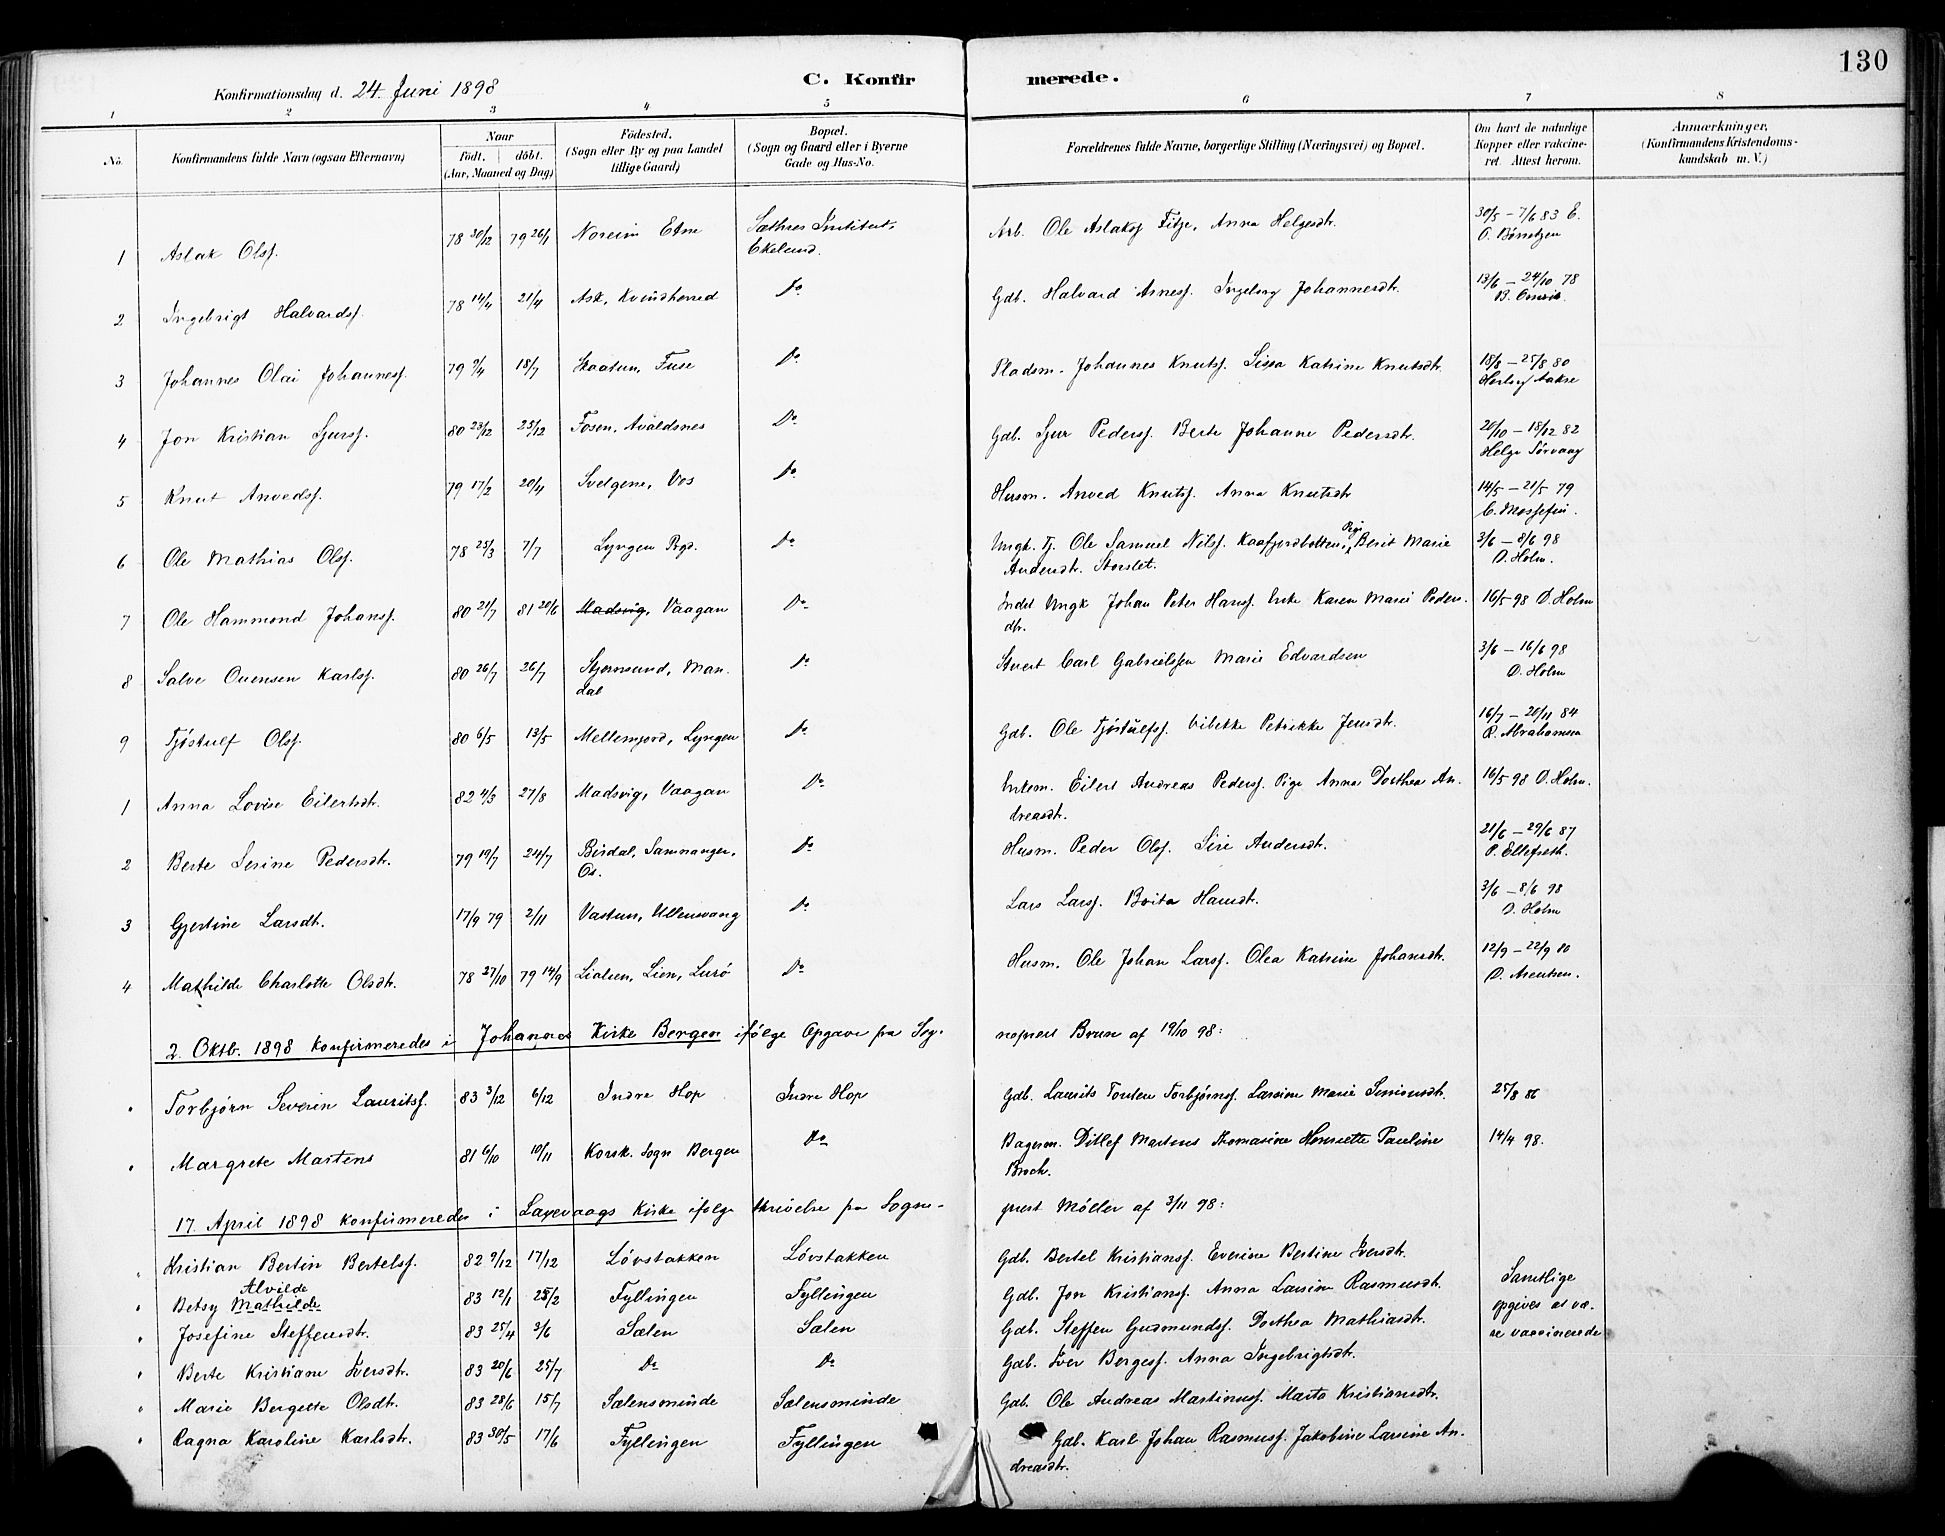 130
C. Konfirmerede.
Konfirmationsdag d. 24. Juni 1898
1 2 3 4 5 6 7 8
No. Konfirmandens fulde Navn (ogsaa Efternavn) Naar født. døbt. (Aar, Maaned og Dag) Fødested. (Sogn eller By og paa Landet tillige Gaard) Bopæl. (Sogn og Gaard eller i Byerne Gade og Hus-No. Forældrenes fulde Navne, borgerlige Stilling (Næringsvei) og Bopæl. Om havt de naturlige Kopper eller vakcineret. Attest herom. Anmærkninger. (Konfirmandens Kristendomskundskab m. V.)
1 Aslak Olsf. 78 30/12 79 26/1 Noreim Etne Sæthres Institut, Ekelund. Arb. Ole Aslaksf Fitje, Anna Helgesdtr. 30/5 – 7/6 83 E. O. Børretzen
2 Ingebrigt Halvardsf. 78 14/4 21/4 Ask, Kvindherred Do Gdb. Halvard Arnesf. Ingeborg Johannesdtr. 13/6 – 24/10 78 B.
3 Johannes Olai Johannesf. 79 9/4 18/7 Skaatun, Fuse Do Pladsm. Johannes Knutsf. Sissa Katrine Knutsdtr. 18/8 – 25/8 80
4 Jon Kristian Sjursf. 80 23/12 25/12 Fosen, Avaldsnes Do Gdb. Sjur Pedersf. Berte Johanne Pedersdtr. 20/10 – 18/12 82 Helge Sørvaag
5 Knut Anvedsf. 79 17/2 20/4 Svelgene, Vos Do Husm. Anved Knutsf. Anna Knutsdtr 14/5 – 21/5 79
6 Ole Mathias Olsf. 78 25/3 7/7 Lyngen Prgd. Do Ungk. Tj. Ole Samuel Nilsf. Kaafjordbotten, Pige Berit Marie Andersdtr. Storslet. 3/6 – 8/6 98 D. Holm.
7 Ole Hammond Johansf. 80 21/7 81 20/6 Madsvig, Vaagan Do Indst Ungk Johan Peter Hansf. Enke Karen Marie Pedersdtr. 16/5 98 D. Holm
8 Salve Ouensen Karlsf. 80 26/7 26/7 Skjernsund, Mandal Do Stuert Carl Gabrielssen Marie Edvardsen 3/6 – 16/6 98 D. Holm
9 Tjöstulf Olsf. 80 6/5 13/5 Mellemjord, Lyngen Do Gdb. Ole Tjöstulfsf. Vibekke Petrikke Jensdtr. 16/7 – 20/11 84 R. Abrahamsen
1 Anna Lovise Eilertsdtr. 82 4/3 27/8 Madsvig, Vaagan Do Enkem. Eilert Andreas Pedersf. Pige Anna Dorthea Andreasdtr. 16/5 98 D. Holm.
2 Berte Serine Pedersdtr. 79 19/7 24/7 Birdal, Samnanger, Os. Do Husm. Peder Olsf. Siri Andersdtr. 21/6 – 29/6 87 P. Ellefseth.
3 Gjertine Larsdtr. 17/9 79 2/11 Vastun, Ullensvang Do Lars Larsf. Brita Hansdtr. 3/6 – 8/6 98 D. Holm
4 Mathilde Charlotte Olsdtr. 78 27/10 79 14/9 Lialien, Lien, Lurö Do Husm. Ole Johan Larsf. Olea Katrine Johansdtr. 12/9 – 22/9 80 D. Arentsen.
2. Oktb. 1898 konfirmeredes i Johannes Kirke Bergen ifölge Opgave fra Sognepræst Brun af 19/10 98:
" Torbjørn Severin Lauritsf. 83 3/12 6/12 Indre Hop Indre Hop Gdb. Laurits Tonten Torbjörnsf. Larsine Marie Simonsdtr. 25/8 86
" Margrete Martens 81 6/10 10/11 Korsk. Sogn Bergen Do Bagerm. Ditlef Martens Thomasine Henriette Pauline Broch. 14/4 98.
17. April 1898 konfirmeredes i Laxevaags Kirke ifölge Skrivelse fra Sognepræst Möller af 3/11 98:
" Kristian Bertin Bertelsf. 82 9/12 17/12 Lövstakken Lövstakken Gdb. Bertel Kristiansf. Everine Bertine Iversdtr.
" Betsy Alvilde Mathilde 83 12/1 25/2 Fyllingen Fyllingen Gdb. Jon Kristiansf. Anna Larsine Rasmusdtr. Samtlige opgives at være vaccinerede
" Josefine Steffensdtr. 83 25/4 3/6 Sælen Sælen Gdb. Steffen Gudmundsf. Dorthea Mathiasdtr.
" Berte Kristiane Iversdtr. 83 20/6 25/7 Do Do Gdb. Iver Bergesf. Anna Ingebrigtsdtr.
" Marie Bergette Olsdtr. 83 28/6 15/7 Sælensminde Sælensminde Gdb. Ole Andreas Martinusf. Marta Kristiansdtr.
" Ragna Karoline Karlsdtr. 83 30/5 17/6 Fyllingen Fyllingen Gdb. Karl Johan Rasmusf. Jakobine Larsine Andreasdtr.